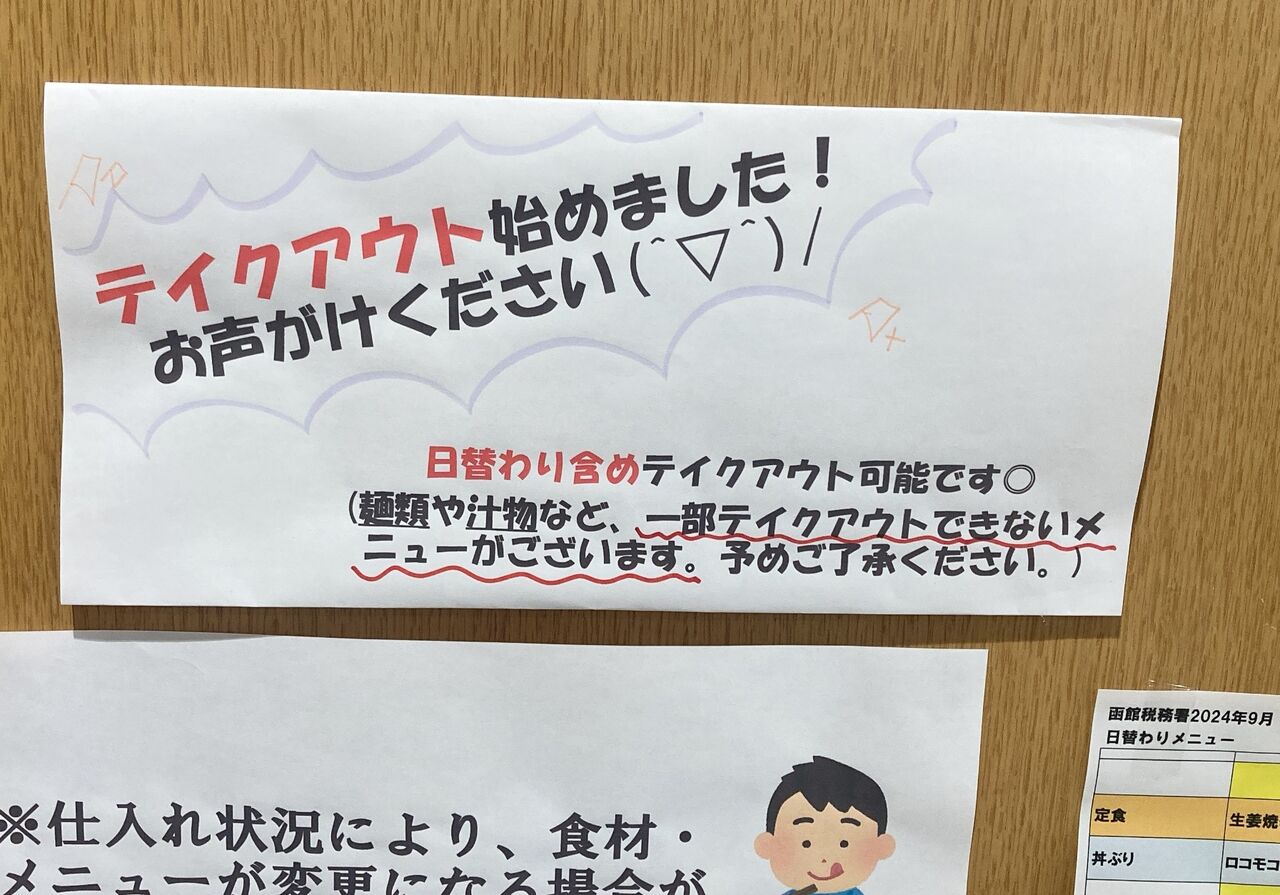 テイクアウト始めました！
お声がけください(^▽^)/
日替わり含めテイクアウト可能です○
(麺類や汁物など、一部テイクアウトできないメ
ニューがございます。予めご了承ください。)
※仕入れ状況により、食材・
メニューが変更になる場合が
函館税務署2024年9月
日替わりメニュー
定食 生姜焼
丼ぶり ロコモコ